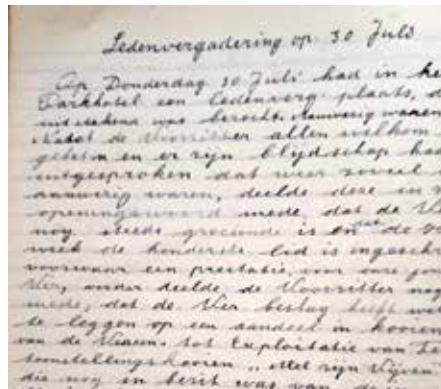 Ledenvergadering op 30 Juli
Op Donderdag 30 Juli had in he
Parkhotel een ledenverg. plaats, d
uitstekend was bezocht. Aanwezig waren
Nadat de Voorzitter allen welkom
geheten en er zijn blijdschap had
uitgesproken dat weer zoveel
aanwezig waren, deelde deze in
openingswoord mede, dat de V
nog steeds groeiende is en de vo
week de honderste lid is ingeschr
voorwaar een prestatie, voor onze jon
Ver, onder deelde de Voorzitter nog
mede, dat de Ver beslag heeft we
te leggen op een aandeel in kooien
van de Vereen. tot Exploitatie van Te
toonstellingskooien „Met zijn Vijven
die nog in bezit was van